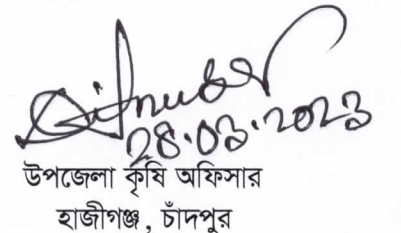 28.03.2023
উপজেলা কৃষি অফিসার
হাজীগঞ্জ, চাঁদপুর